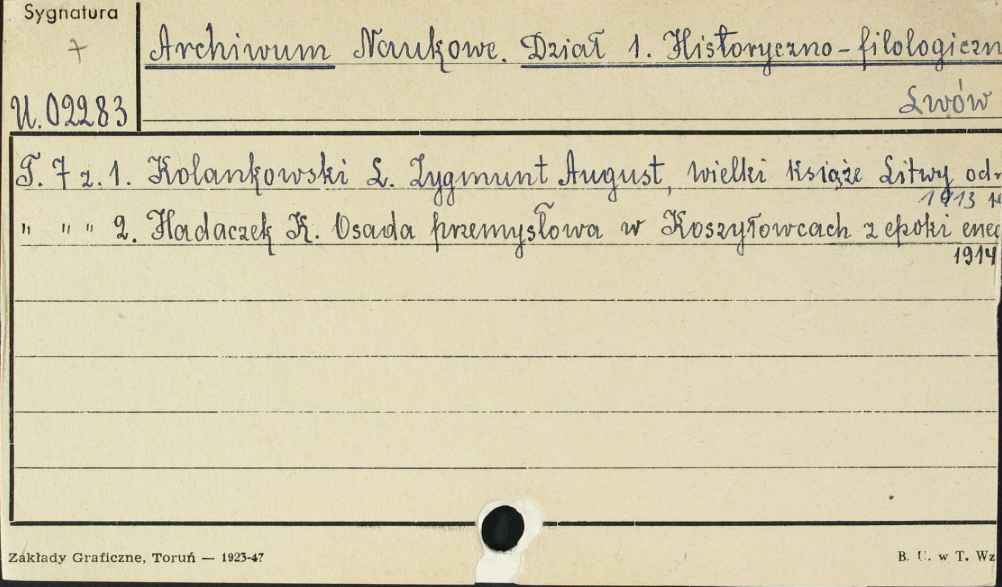 Sygnatura
+
Archiwum Naukowe. Dział 1. Historyczno-filologiczn
U.02283
Lwów
T. 7 z. 1. Kolankowski L. Zygmunt August, wielki książe Litwy
1913
" " " 2. Hadaczek K. Osada przemysłowa w Koszyłowcach z epoki
1914
Zakłady Graficzne, Toruń — 1923-47
B. U. w T. Wz